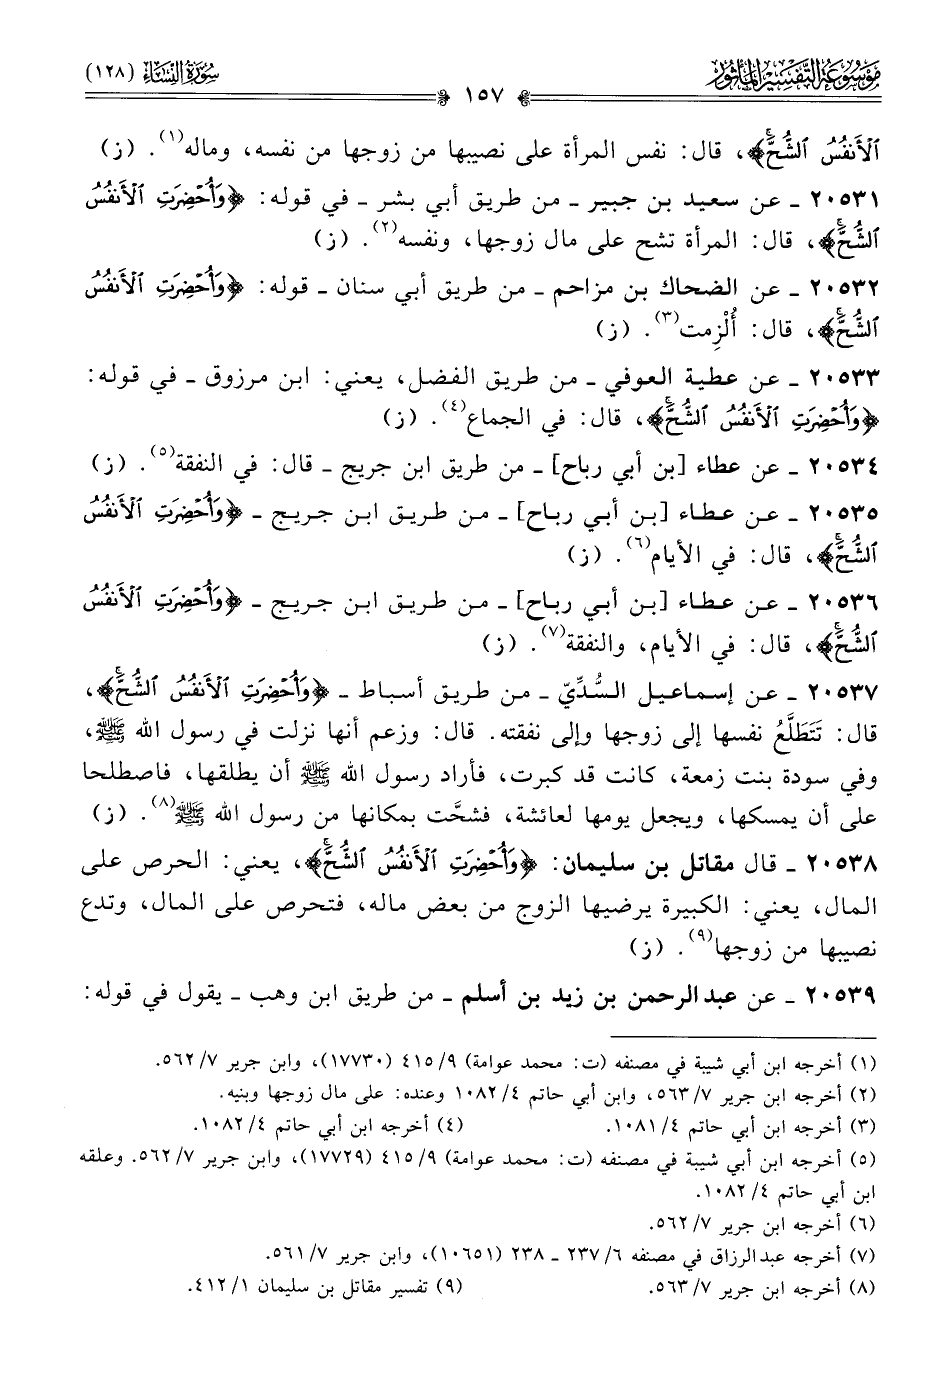 مَوْسُوعَةُ التَّفْسِيرِ المَأْثُورِ
سُورَةُ النِّسَاءِ (١٢٨)
١٥٧
ٱلْأَنفُسُ ٱلشُّحَّۚ﴾، قال: نفس المرأة على نصيبها من زوجها من نفسه، وماله(١). (ز)
٢٠٥٣١ ـ عن سعيد بن جبير ـ من طريق أبي بشر ـ في قوله: ﴿وَأُحْضِرَتِ ٱلْأَنفُسُ
ٱلشُّحَّۚ﴾، قال: المرأة تشح على مال زوجها، ونفسه(٢). (ز)
٢٠٥٣٢ ـ عن الضحاك بن مزاحم ـ من طريق أبي سنان ـ قوله: ﴿وَأُحْضِرَتِ ٱلْأَنفُسُ
ٱلشُّحَّۚ﴾، قال: أُلْزِمت(٣). (ز)
٢٠٥٣٣ ـ عن عطية العوفي ـ من طريق الفضل، يعني: ابن مرزوق ـ في قوله:
﴿وَأُحْضِرَتِ ٱلْأَنفُسُ ٱلشُّحَّۚ﴾، قال: في الجماع(٤). (ز)
٢٠٥٣٤ ـ عن عطاء [بن أبي رباح] ـ من طريق ابن جريج ـ قال: في النفقة(٥). (ز)
٢٠٥٣٥ ـ عن عطاء [بن أبي رباح] ـ من طريق ابن جريج ـ ﴿وَأُحْضِرَتِ ٱلْأَنفُسُ
ٱلشُّحَّۚ﴾، قال: في الأيام(٦). (ز)
٢٠٥٣٦ ـ عن عطاء [بن أبي رباح] ـ من طريق ابن جريج ـ ﴿وَأُحْضِرَتِ ٱلْأَنفُسُ
ٱلشُّحَّۚ﴾، قال: في الأيام، والنفقة(٧). (ز)
٢٠٥٣٧ ـ عن إسماعيل السُّدِّيّ ـ من طريق أسباط ـ ﴿وَأُحْضِرَتِ ٱلْأَنفُسُ ٱلشُّحَّۚ﴾،
قال: تَتَطَلَّعُ نفسها إلى زوجها وإلى نفقته. قال: وزعم أنها نزلت في رسول الله ﷺ،
وفي سودة بنت زمعة، كانت قد كبرت، فأراد رسول الله ﷺ أن يطلقها، فاصطلحا
على أن يمسكها، ويجعل يومها لعائشة، فشحَّت بمكانها من رسول الله ﷺ(٨). (ز)
٢٠٥٣٨ ـ قال مقاتل بن سليمان: ﴿وَأُحْضِرَتِ ٱلْأَنفُسُ ٱلشُّحَّۚ﴾، يعني: الحرص على
المال، يعني: الكبيرة يرضيها الزوج من بعض ماله، فتحرص على المال، وتدع
نصيبها من زوجها(٩). (ز)
٢٠٥٣٩ ـ عن عبد الرحمن بن زيد بن أسلم ـ من طريق ابن وهب ـ يقول في قوله:
(١) أخرجه ابن أبي شيبة في مصنفه (ت: محمد عوامة) ٩/ ٤١٥ (١٧٧٣٠)، وابن جرير ٧/ ٥٦٢.
(٢) أخرجه ابن جرير ٧/ ٥٦٣، وابن أبي حاتم ٤/ ١٠٨٢ وعنده: على مال زوجها وبنيه.
(٣) أخرجه ابن أبي حاتم ٤/ ١٠٨١. (٤) أخرجه ابن أبي حاتم ٤/ ١٠٨٢.
(٥) أخرجه ابن أبي شيبة في مصنفه (ت: محمد عوامة) ٩/ ٤١٥ (١٧٧٢٩)، وابن جرير ٧/ ٥٦٢. وعلقه
ابن أبي حاتم ٤/ ١٠٨٢.
(٦) أخرجه ابن جرير ٧/ ٥٦٢.
(٧) أخرجه عبد الرزاق في مصنفه ٦/ ٢٣٧ ـ ٢٣٨ (١٠٦٥١)، وابن جرير ٧/ ٥٦١.
(٨) أخرجه ابن جرير ٧/ ٥٦٣. (٩) تفسير مقاتل بن سليمان ١/ ٤١٢.